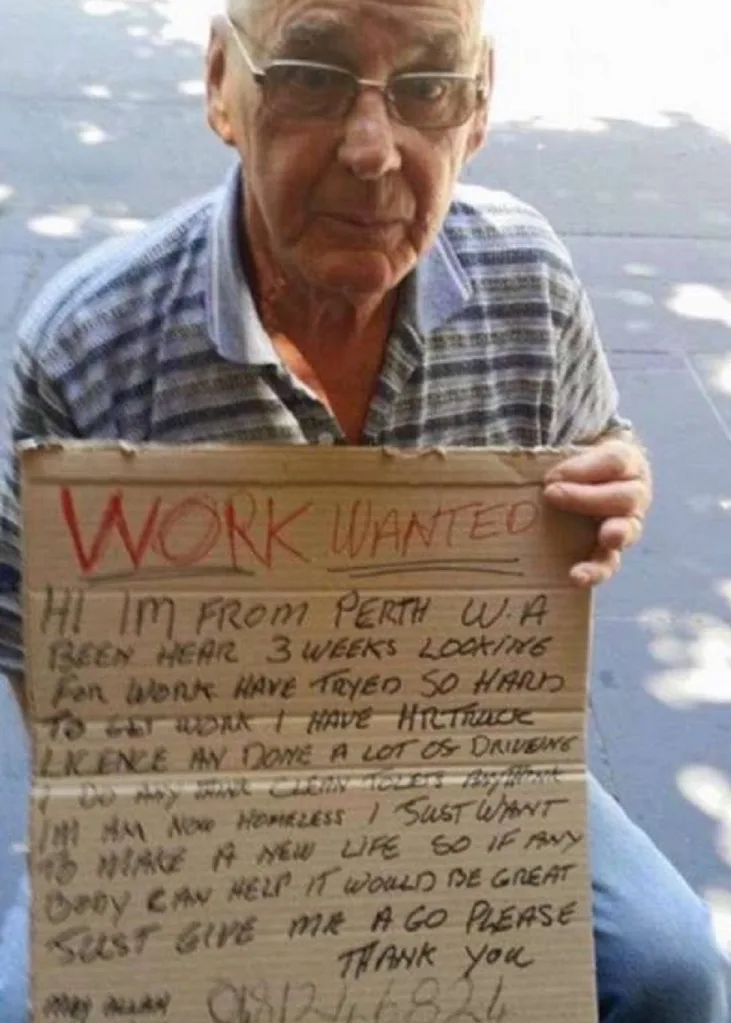 WORK WANTED
HI IM FROM PERTH W.A
BEEN HEAR 3 WEEKS LOOKING
FOR WORK HAVE TRYED SO HARD
TO GET WORK I HAVE HR TRUCK
LICENCE AN DONE A LOT OF DRIVEING
I DO ANY THINK CLEAN TOLETS
IM AM NOW HOMELESS I JUST WANT
TO MAKE A NEW LIFE SO IF ANY
BODY CAN HELP IT WOULD BE GREAT
JUST GIVE ME A GO PLEASE
THANK YOU
ALLAN